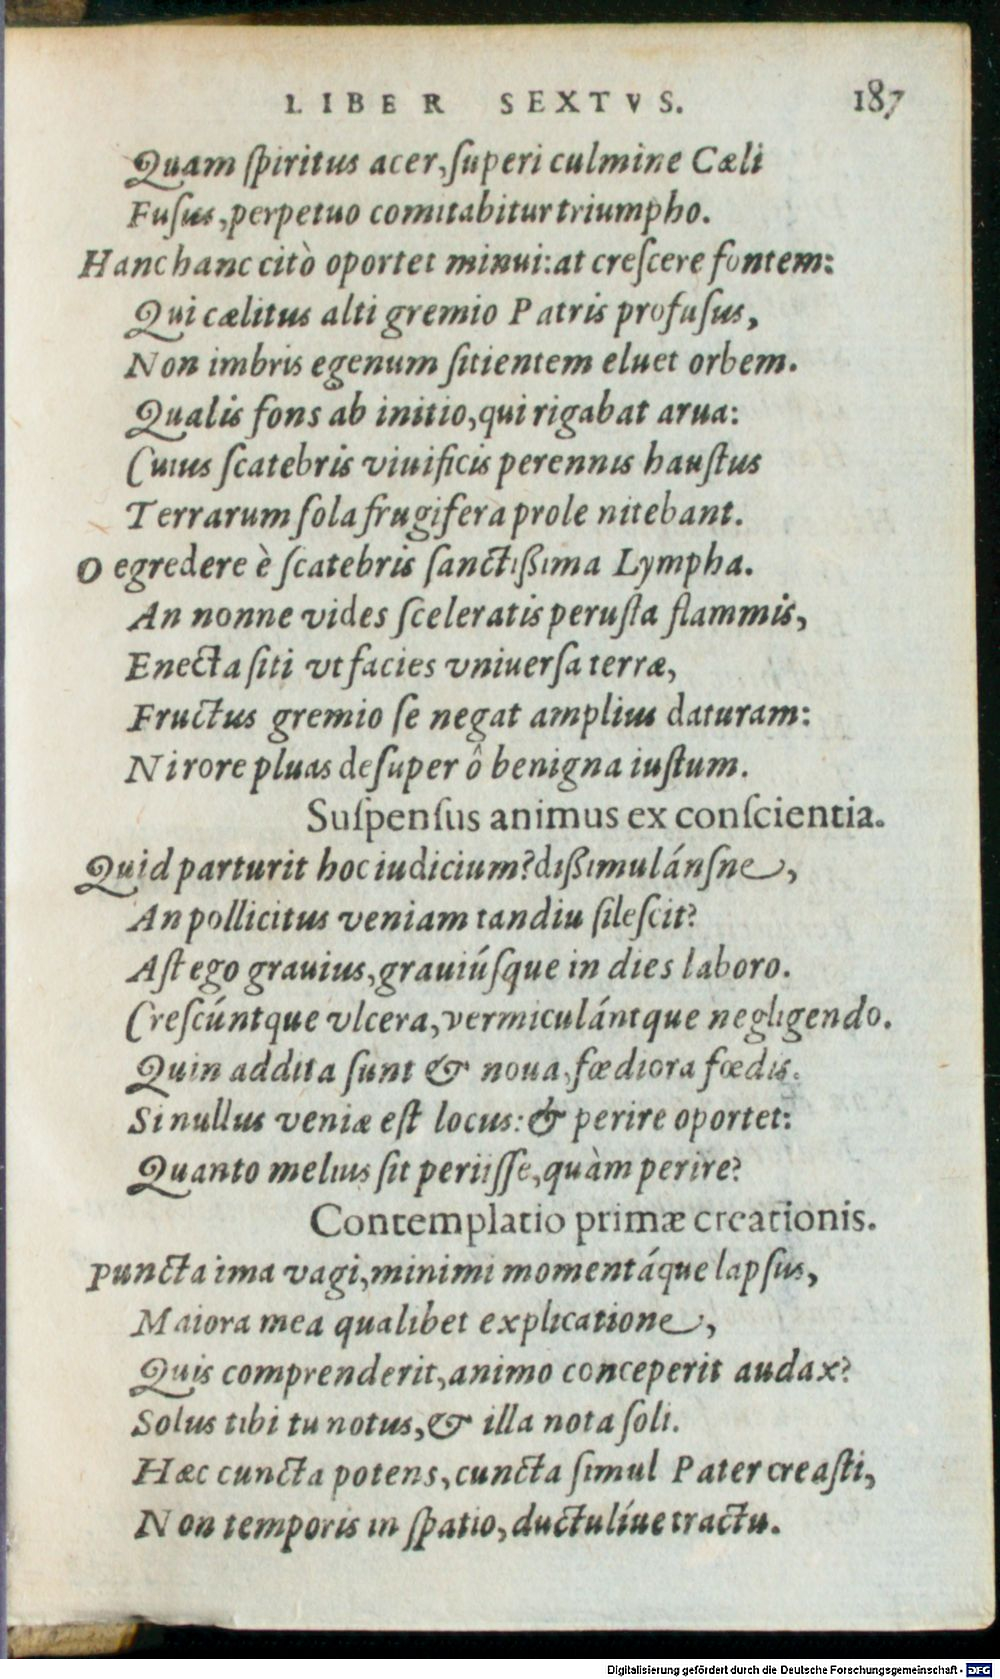 LIBER SEXTVS. 187
Quam spiritus acer, superi culmine Cæli
Fusus, perpetuo comitabitur triumpho.
Hanc hanc citò oportet minui: at crescere fontem:
Qui cælitus alti gremio Patris profusus,
Non imbris egenum sitientem eluet orbem.
Qualis fons ab initio, qui rigabat arua:
Cuius scatebris viuificis perennis haustus
Terrarum sola frugifera prole nitebant.
O egredere è scatebris sanctißima Lympha.
An nonne vides sceleratis perusta flammis,
Enecta siti vt facies vniuersa terræ,
Fructus gremio se negat amplius daturam:
Ni rore pluas desuper ô benigna iustum.
Suspensus animus ex conscientia.
Quid parturit hoc iudicium? dißimulánsne,
An pollicitus veniam tandiu silescit?
Ast ego grauius, grauiúsque in dies laboro.
Crescúntque vlcera, vermiculántque negligendo.
Quin addita sunt & noua, fœdiora fœdis.
Si nullus veniæ est locus: & perire oportet:
Quanto melius sit periisse, quàm perire?
Contemplatio primæ creationis.
Puncta ima vagi, minimi momentáque lapsus,
Maiora mea qualibet explicatione,
Quis comprenderit, animo conceperit audax?
Solus tibi tu notus, & illa nota soli.
Hæc cuncta potens, cuncta simul Pater creasti,
Non temporis in spatio, ductulíue tractu.
Digitalisierung gefördert durch die Deutsche Forschungsgemeinschaft - DFG